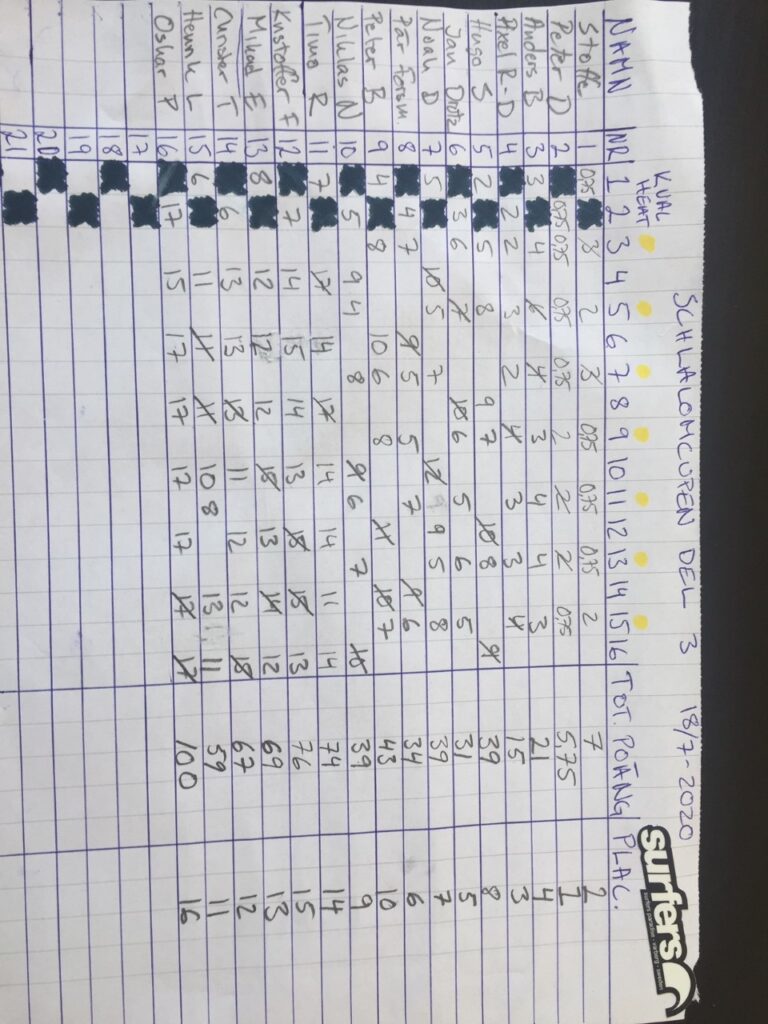 SCHLALOMCUPEN DEL 3 18/7-2020
surfers
KVAL HEAT
NAMN NR 1 2 3 4 5 6 7 8 9 10 11 12 13 14 15 16 TOT. POÄNG PLAC.
Stoffe 1 0,75 3 2 3 0,75 0,75 0,75 2 7 2
Peter D 2 0,75 0,75 0,75 0,75 2 2 2 0,75 5,75 1
Anders B 3 3 4 6 4 3 4 4 3 21 4
Axel R-D 4 2 2 3 2 4 3 3 4 15 3
Hugo S 5 2 5 8 9 7 10 8 9 39 8
Jan Drotz 6 3 6 7 10 6 5 6 5 31 5
Noah D 7 5 10 5 7 12 9 5 8 39 7
Pär Forsm. 8 4 7 9 5 5 7 6 34 6
Peter B 9 4 8 10 6 8 11 10 7 43 10
Niklas N 10 5 9 4 8 9 6 7 10 39 9
Timo R 11 7 17 14 17 14 14 11 14 74 14
Kristoffer F 12 7 14 15 14 13 15 15 13 76 15
Mikael E 13 8 12 12 12 15 13 14 12 69 13
Christer T 14 6 13 13 15 11 12 12 15 67 12
Henrik L 15 6 11 11 11 10 8 13 11 59 11
Oskar P 16 17 15 17 17 17 17 17 17 100 16
17
18
19
20
21